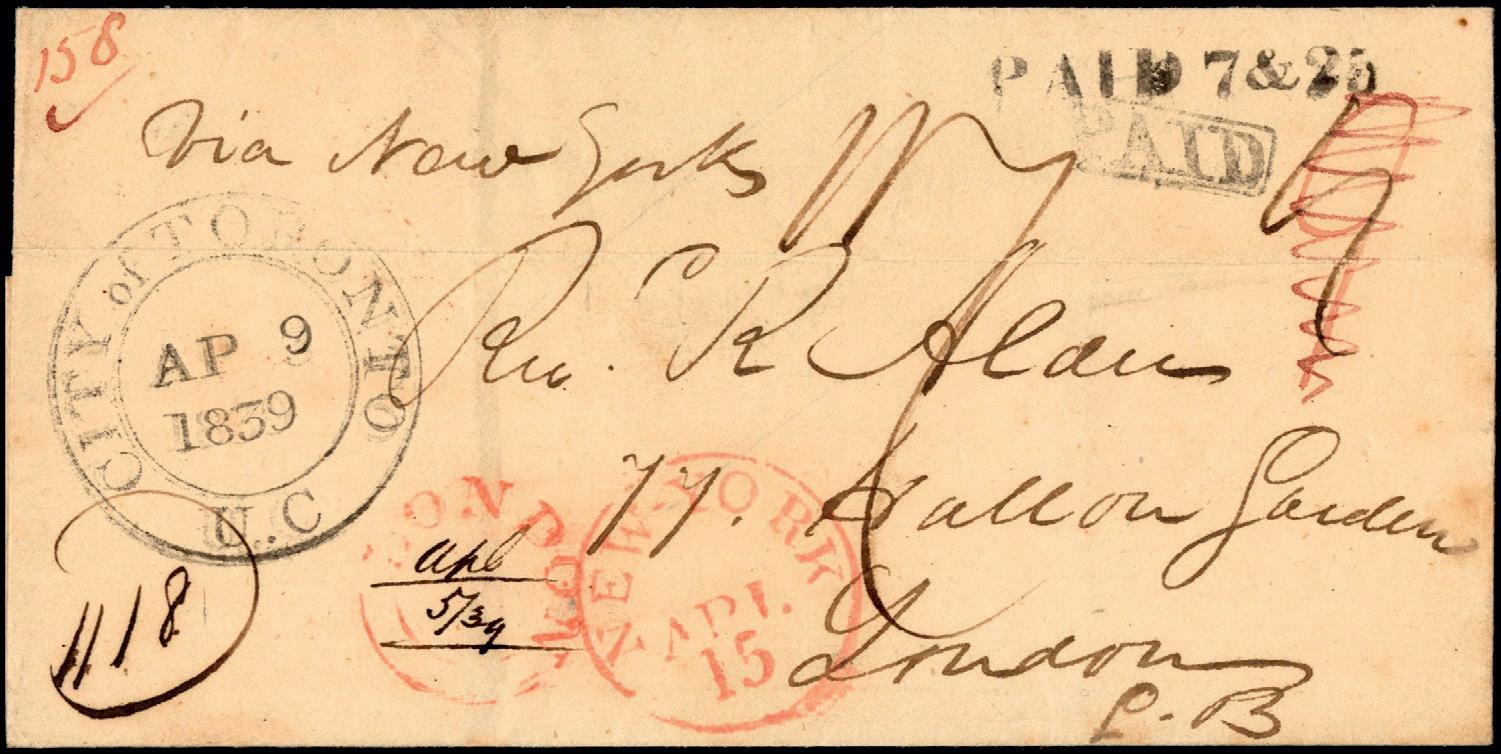 158
PAID 7 & 25
PAID
Via New York
CITY of TORONTO U.C
AP 9
1839
Rev. R Alder
77. Hatton Garden
London
G.B
LONDON
NEW-YORK
APL.
15
apl
5/39
1118